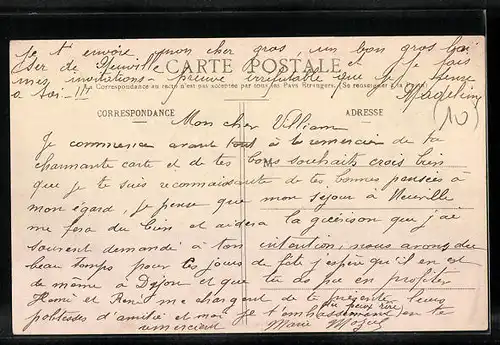 Je t'envoie, mon cher gros, un bon gros bai
ser de Neuville et je fais
CARTE POSTALE
mes invitations - preuve irréfutable que je pense
à toi - !!!
La Correspondance au recto n'est pas acceptée par tous les Pays Etrangers. (Se renseigner à la Poste)
Madeleine
(10)
CORRESPONDANCE
ADRESSE
Mon cher William
Je commence avant tout à te remercier de ta
charmante carte et de tes bons souhaits crois bien
que je te suis reconnaissante de tes bonnes pensées à
mon égard, je pense que mon séjour à Neuville
me fera du bien et aidera la guérison que j'ai
souvent demandé à ton intention, nous avons du
beau temps pour ces jours de fête j'espère qu'il en est
de même à Dijon et que tu as pu en profiter
Henri et René me chargent de te présenter leurs
politesses d'amitié et moi je t'embrasse en te
(tu peux rire)
remerciant Marie